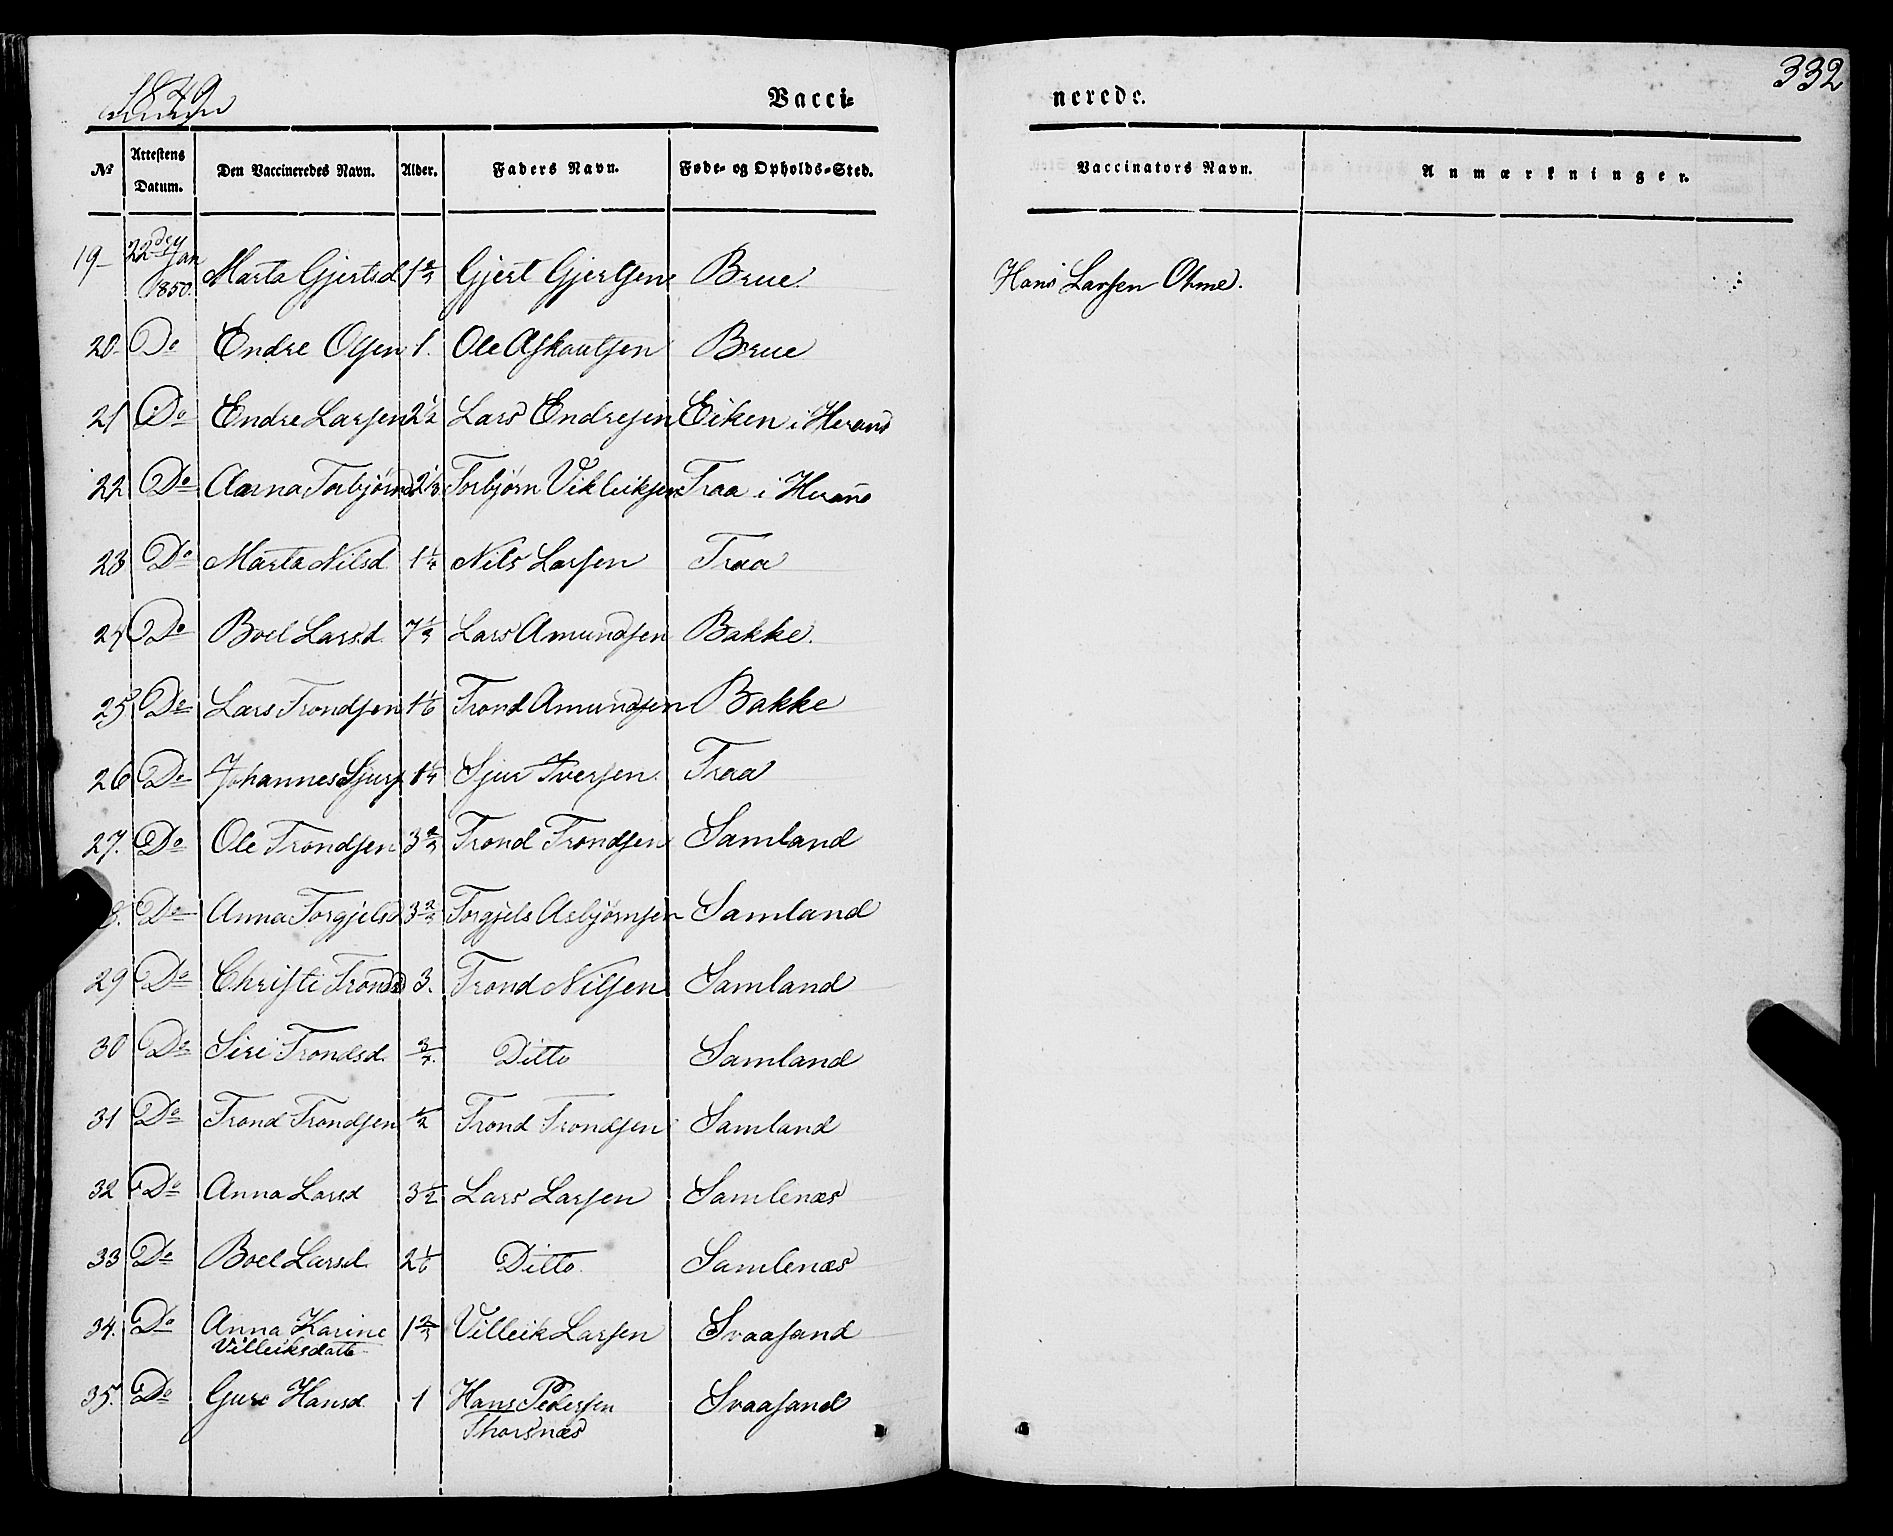 1849
Vacci= nerede.
332
No Attestens Datum. Den Vaccineredes Navn. Alder. Faders Navn. Føde- og Opholds-Sted. Vaccinators Navn. Anmærkninger.
19- 22 Jan 1850. Marta Gjertsd 1 2/3 Gjert Gjertsen Brue Hans Larsen Ohme.
20. Do Endre Olsen 1. Ole Askautsen Brue
21 Do Endre Larsen 2 1/2 Lars Endresen Eiken i Herans
22 Do Torbjørn Vikleiksen Traa i Herans
23 Do Marta Nilsd 1 1/4 Nils Larsen Traa
24 Do Boel Larsd 7 1/3 Lars Amundsen Bakke.
25 Do Lars Trondsen 1 1/6 Trond Amundsen Bakke
26 Do Johannes Sjurs 1 1/4 Sjur Iversen Traa
27. Do Ole Trondsen 3 2/3 Trond Trondsen Samland
8. Do Anna Torgjelsd 3 2/3 Torgjels Asbjørnsen Samland
29 Do Christi Tronds 3. Trond Nilsen Samland
30 Do Siri Trondsd Ditto Samland
31 Do Trond Trondsen 1/2 Trond Trondsen Samland
32 Do Anna Larsd 3 1/2 Lars Larsen Samlenæs
33 Do Boel Larsd 2 1/6 Ditto Samlenæs
34. Do Anna Karine 1 2/3 Villeik Larsen Svaasand
Villeiksdatt
35. Do Guro Hansd 1 Hans Pedersen Svaasand
Thorsnæs